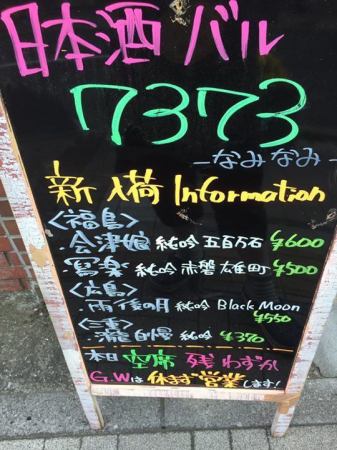 日本酒バル
7373
-なみなみ-
新入荷 Information
<福島>
・会津娘 純吟 五百万石 ¥600
・寫楽 純吟 赤磐雄町 ¥500
<広島>
・雨後の月 純吟 Black Moon
¥550
<三重>
・瀧自慢 純吟 ¥370
本日 空席 残わずか
G.Wは休まず営業します!